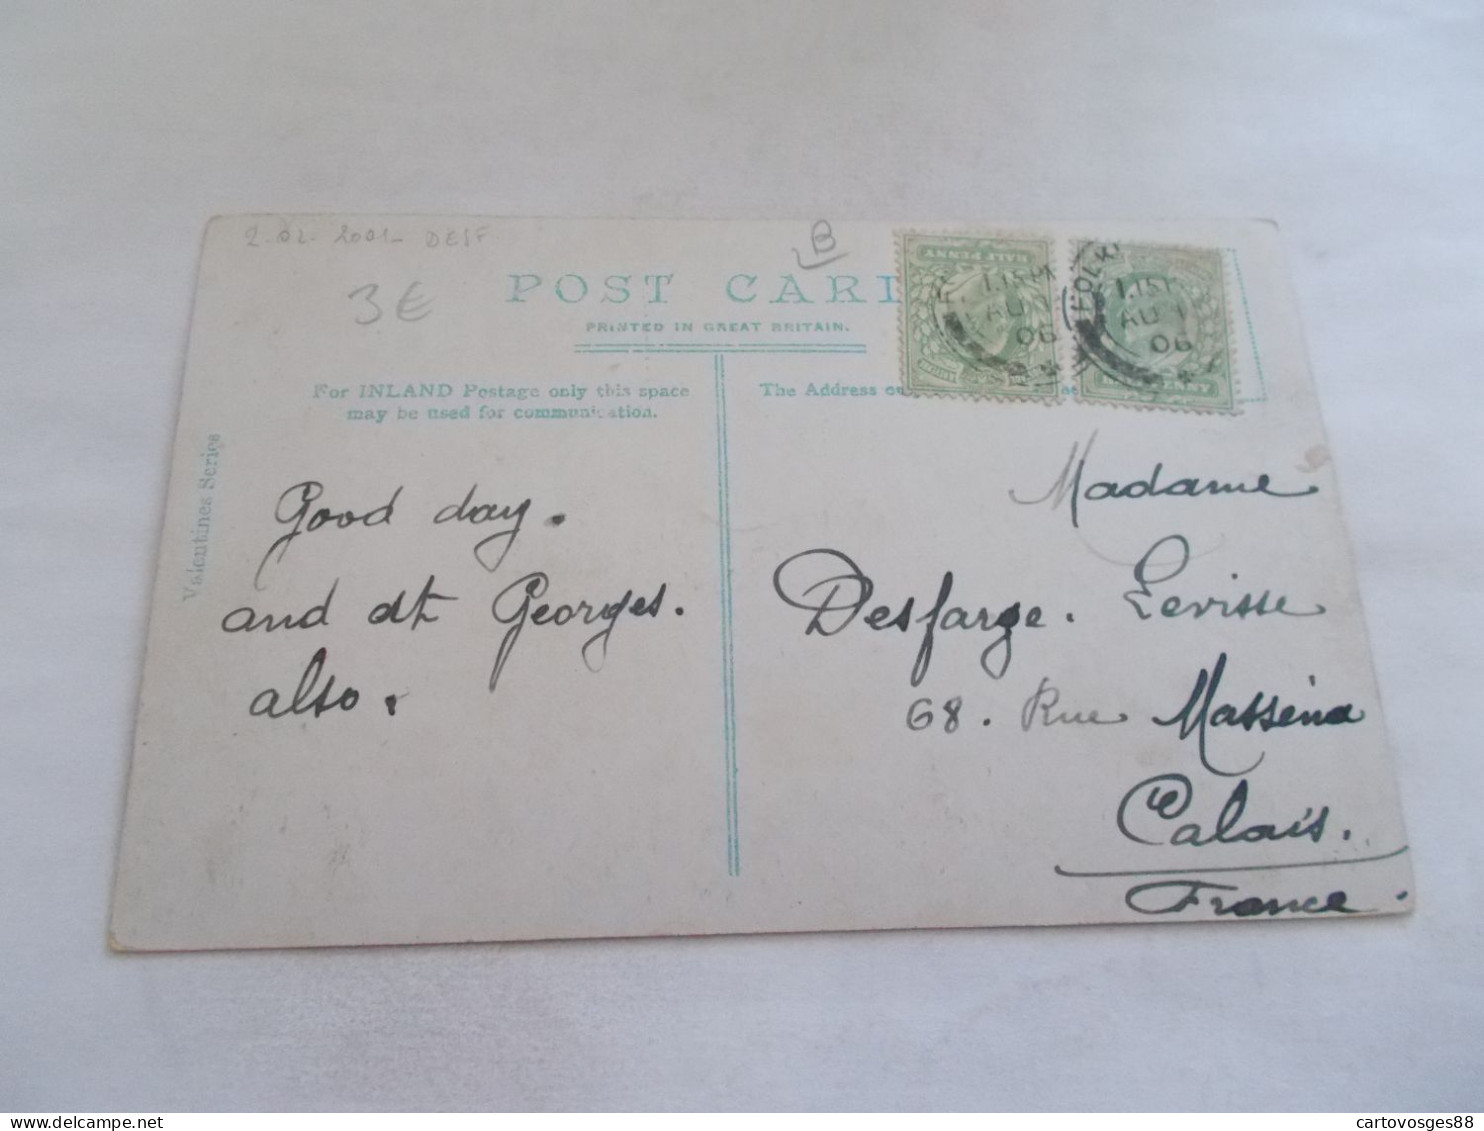 2.02.2001- DESF
B
3€
POST CAR
PRINTED IN GREAT BRITAIN.
For INLAND Postage only this space
may be used for communication.
The Address o
Valentines Series
HALF PENNY
1.15 PM
AU 1
06
FOLK
1.15 P
AU 1
06
Good day.
and at Georges.
also.
Madame
Desfarge. Levisse
68. Rue Masséna
Calais.
France.
cartovosges88